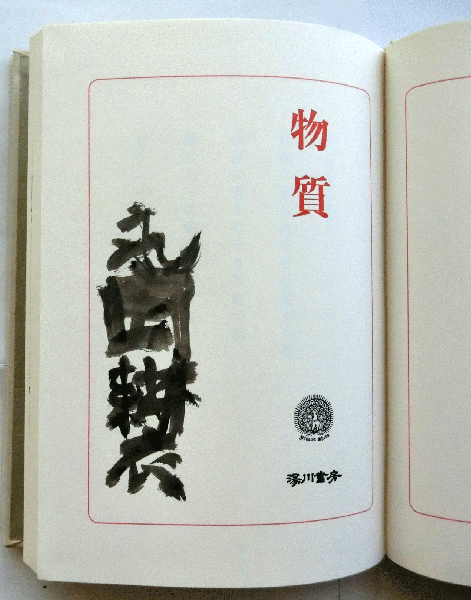 物質
永田耕衣
湯川書房